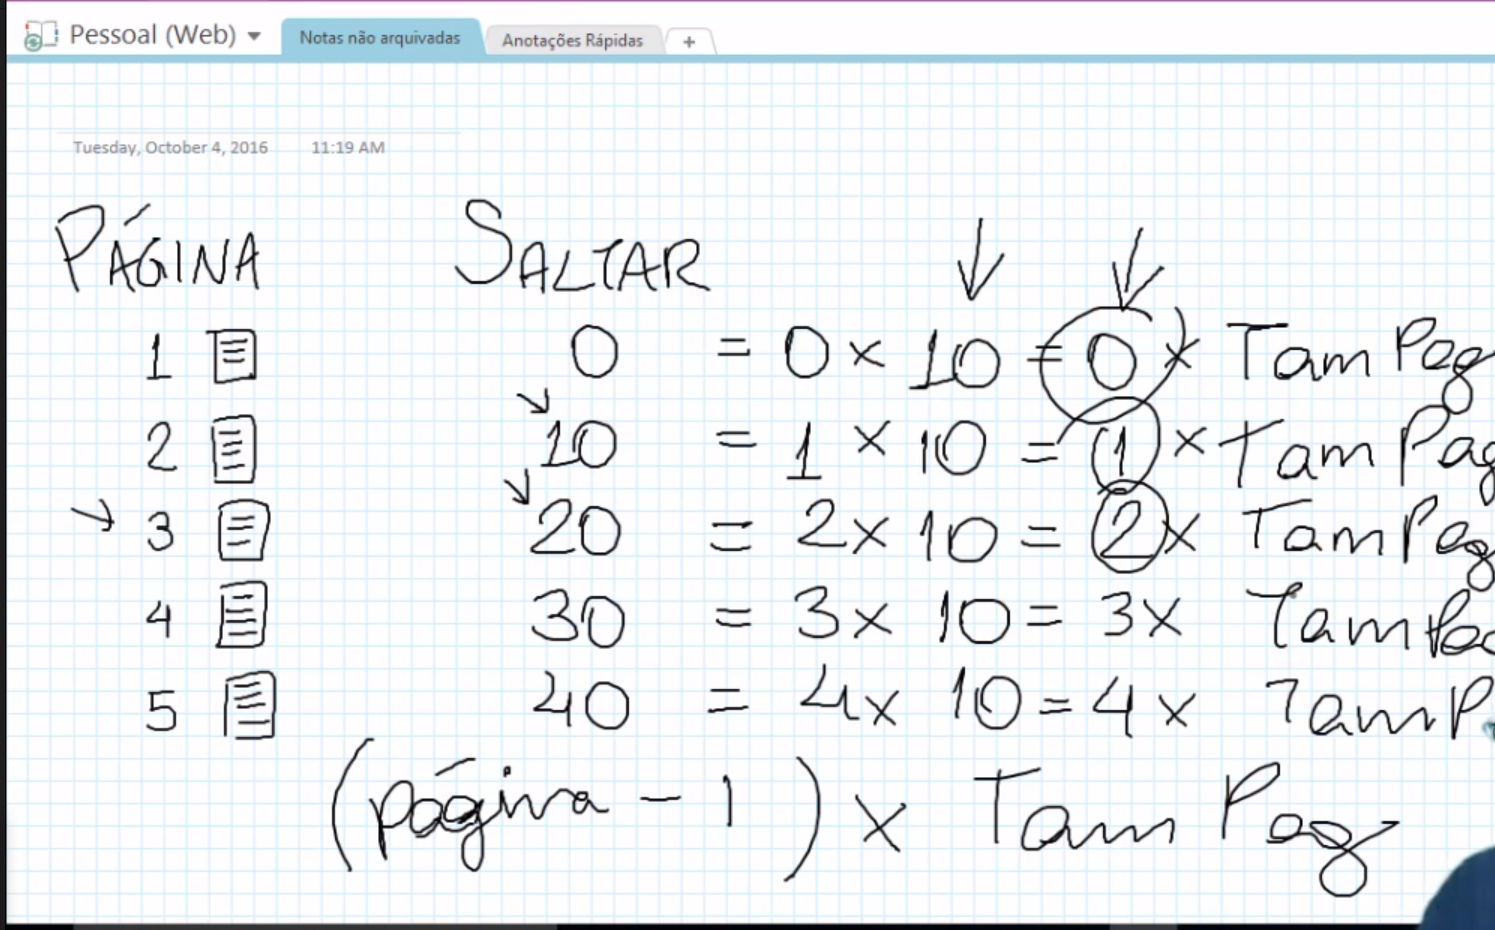 Pessoal (Web) Notas não arquivadas Anotações Rápidas +
Tuesday, October 4, 2016 11:19 AM
PÁGINA SALTAR
1 0 = 0 x 10 = 0 x Tam Pag
2 10 = 1 x 10 = 1 x Tam Pag
3 20 = 2 x 10 = 2 x Tam Pag
4 30 = 3 x 10 = 3 x Tam Pag
5 40 = 4 x 10 = 4 x Tam P
(página - 1) x Tam Pag